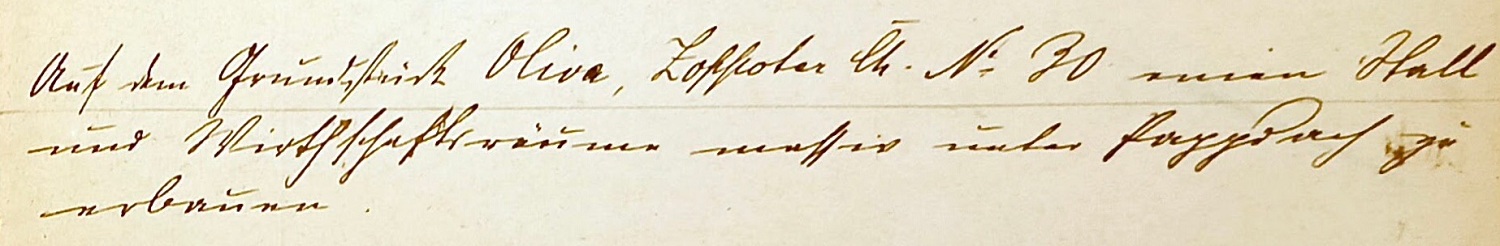 Auf dem Grundstück Oliva, Zoppoter Ch. No 30 einen Stall
und Wirthschaftsräume massiv unter Pappdach zu
erbauen.